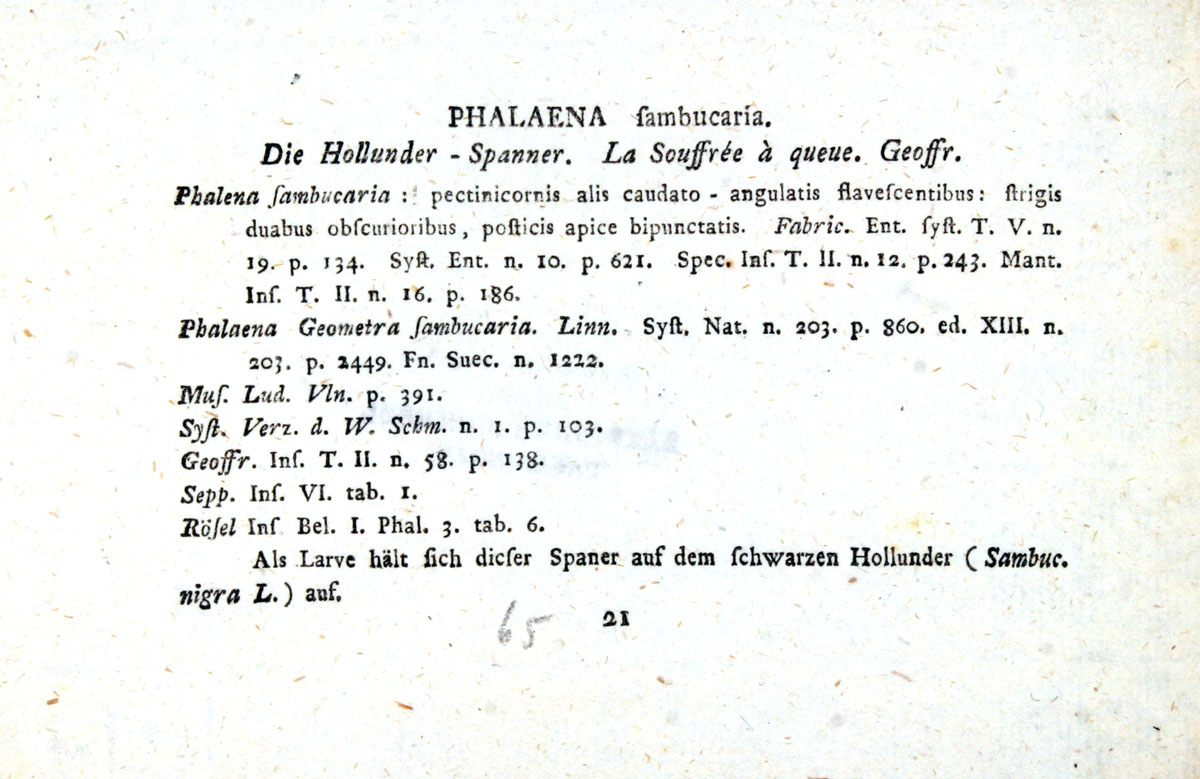 PHALAENA ſambucaria.
Die Hollunder - Spanner. La Souffrée à queue. Geoffr.
Phalena ſambucaria : pectinicornis alis caudato - angulatis flaveſcentibus: ſtrigis
duabus obſcurioribus, poſticis apice bipunctatis. Fabric. Ent. ſyſt. T. V. n.
19. p. 134. Syſt. Ent. n. 10. p. 621. Spec. Inſ. T. II. n. 12. p. 243. Mant.
Inſ. T. II. n. 16. p. 186.
Phalaena Geometra ſambucaria. Linn. Syſt. Nat. n. 203. p. 860. ed. XIII. n.
203. p. 2449. Fn. Suec. n. 1222.
Muſ. Lud. Vln. p. 391.
Syſt. Verz. d. W. Schm. n. 1. p. 103.
Geoffr. Inſ. T. II. n. 58. p. 138.
Sepp. Inſ. VI. tab. 1.
Röſel Inſ Bel. I. Phal. 3. tab. 6.
Als Larve hält ſich dieſer Spaner auf dem ſchwarzen Hollunder (Sambuc.
nigra L.) auf.
65 21